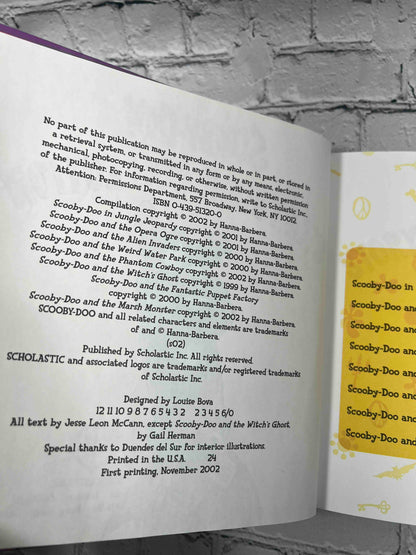 No part of this publication may be reproduced in whole or in part, or stored in
a retrieval system, or transmitted in any form or by any means, electronic,
mechanical, photocopying, recording, or otherwise, without written permission
of the publisher. For information regarding permission, write to Scholastic Inc.,
Attention: Permissions Department, 557 Broadway, New York, NY 10012.
ISBN 0-439-51320-0
Compilation copyright © 2002 by Hanna-Barbera.
Scooby-Doo in Jungle Jeopardy copyright © 2001 by Hanna-Barbera.
Scooby-Doo and the Opera Ogre copyright © 2001 by Hanna-Barbera.
Scooby-Doo and the Alien Invaders copyright © 2000 by Hanna-Barbera.
Scooby-Doo and the Weird Water Park copyright © 2000 by Hanna-Barbera.
Scooby-Doo and the Phantom Cowboy copyright © 2002 by Hanna-Barbera.
Scooby-Doo and the Witch's Ghost copyright © 1999 by Hanna-Barbera.
Scooby-Doo and the Fantastic Puppet Factory
copyright © 2000 by Hanna-Barbera.
Scooby-Doo and the Marsh Monster copyright © 2002 by Hanna-Barbera.
SCOOBY-DOO and all related characters and elements are trademarks
of and © Hanna-Barbera.
(s02)
Published by Scholastic Inc. All rights reserved.
SCHOLASTIC and associated logos are trademarks and/or registered trademarks
of Scholastic Inc.
Designed by Louise Bova
12 11 10 9 8 7 6 5 4 3 2 2 3 4 5 6/0
All text by Jesse Leon McCann, except Scooby-Doo and the Witch's Ghost
by Gail Herman
Special thanks to Duendes del Sur for interior illustrations.
Printed in the U.S.A. 24
First printing, November 2002
Scooby-Doo in
Scooby-Doo and
Scooby-Doo and
Scooby-Doo and
Scooby-Doo and
Scooby-Doo and
Scooby-Doo and
Scooby-Doo and